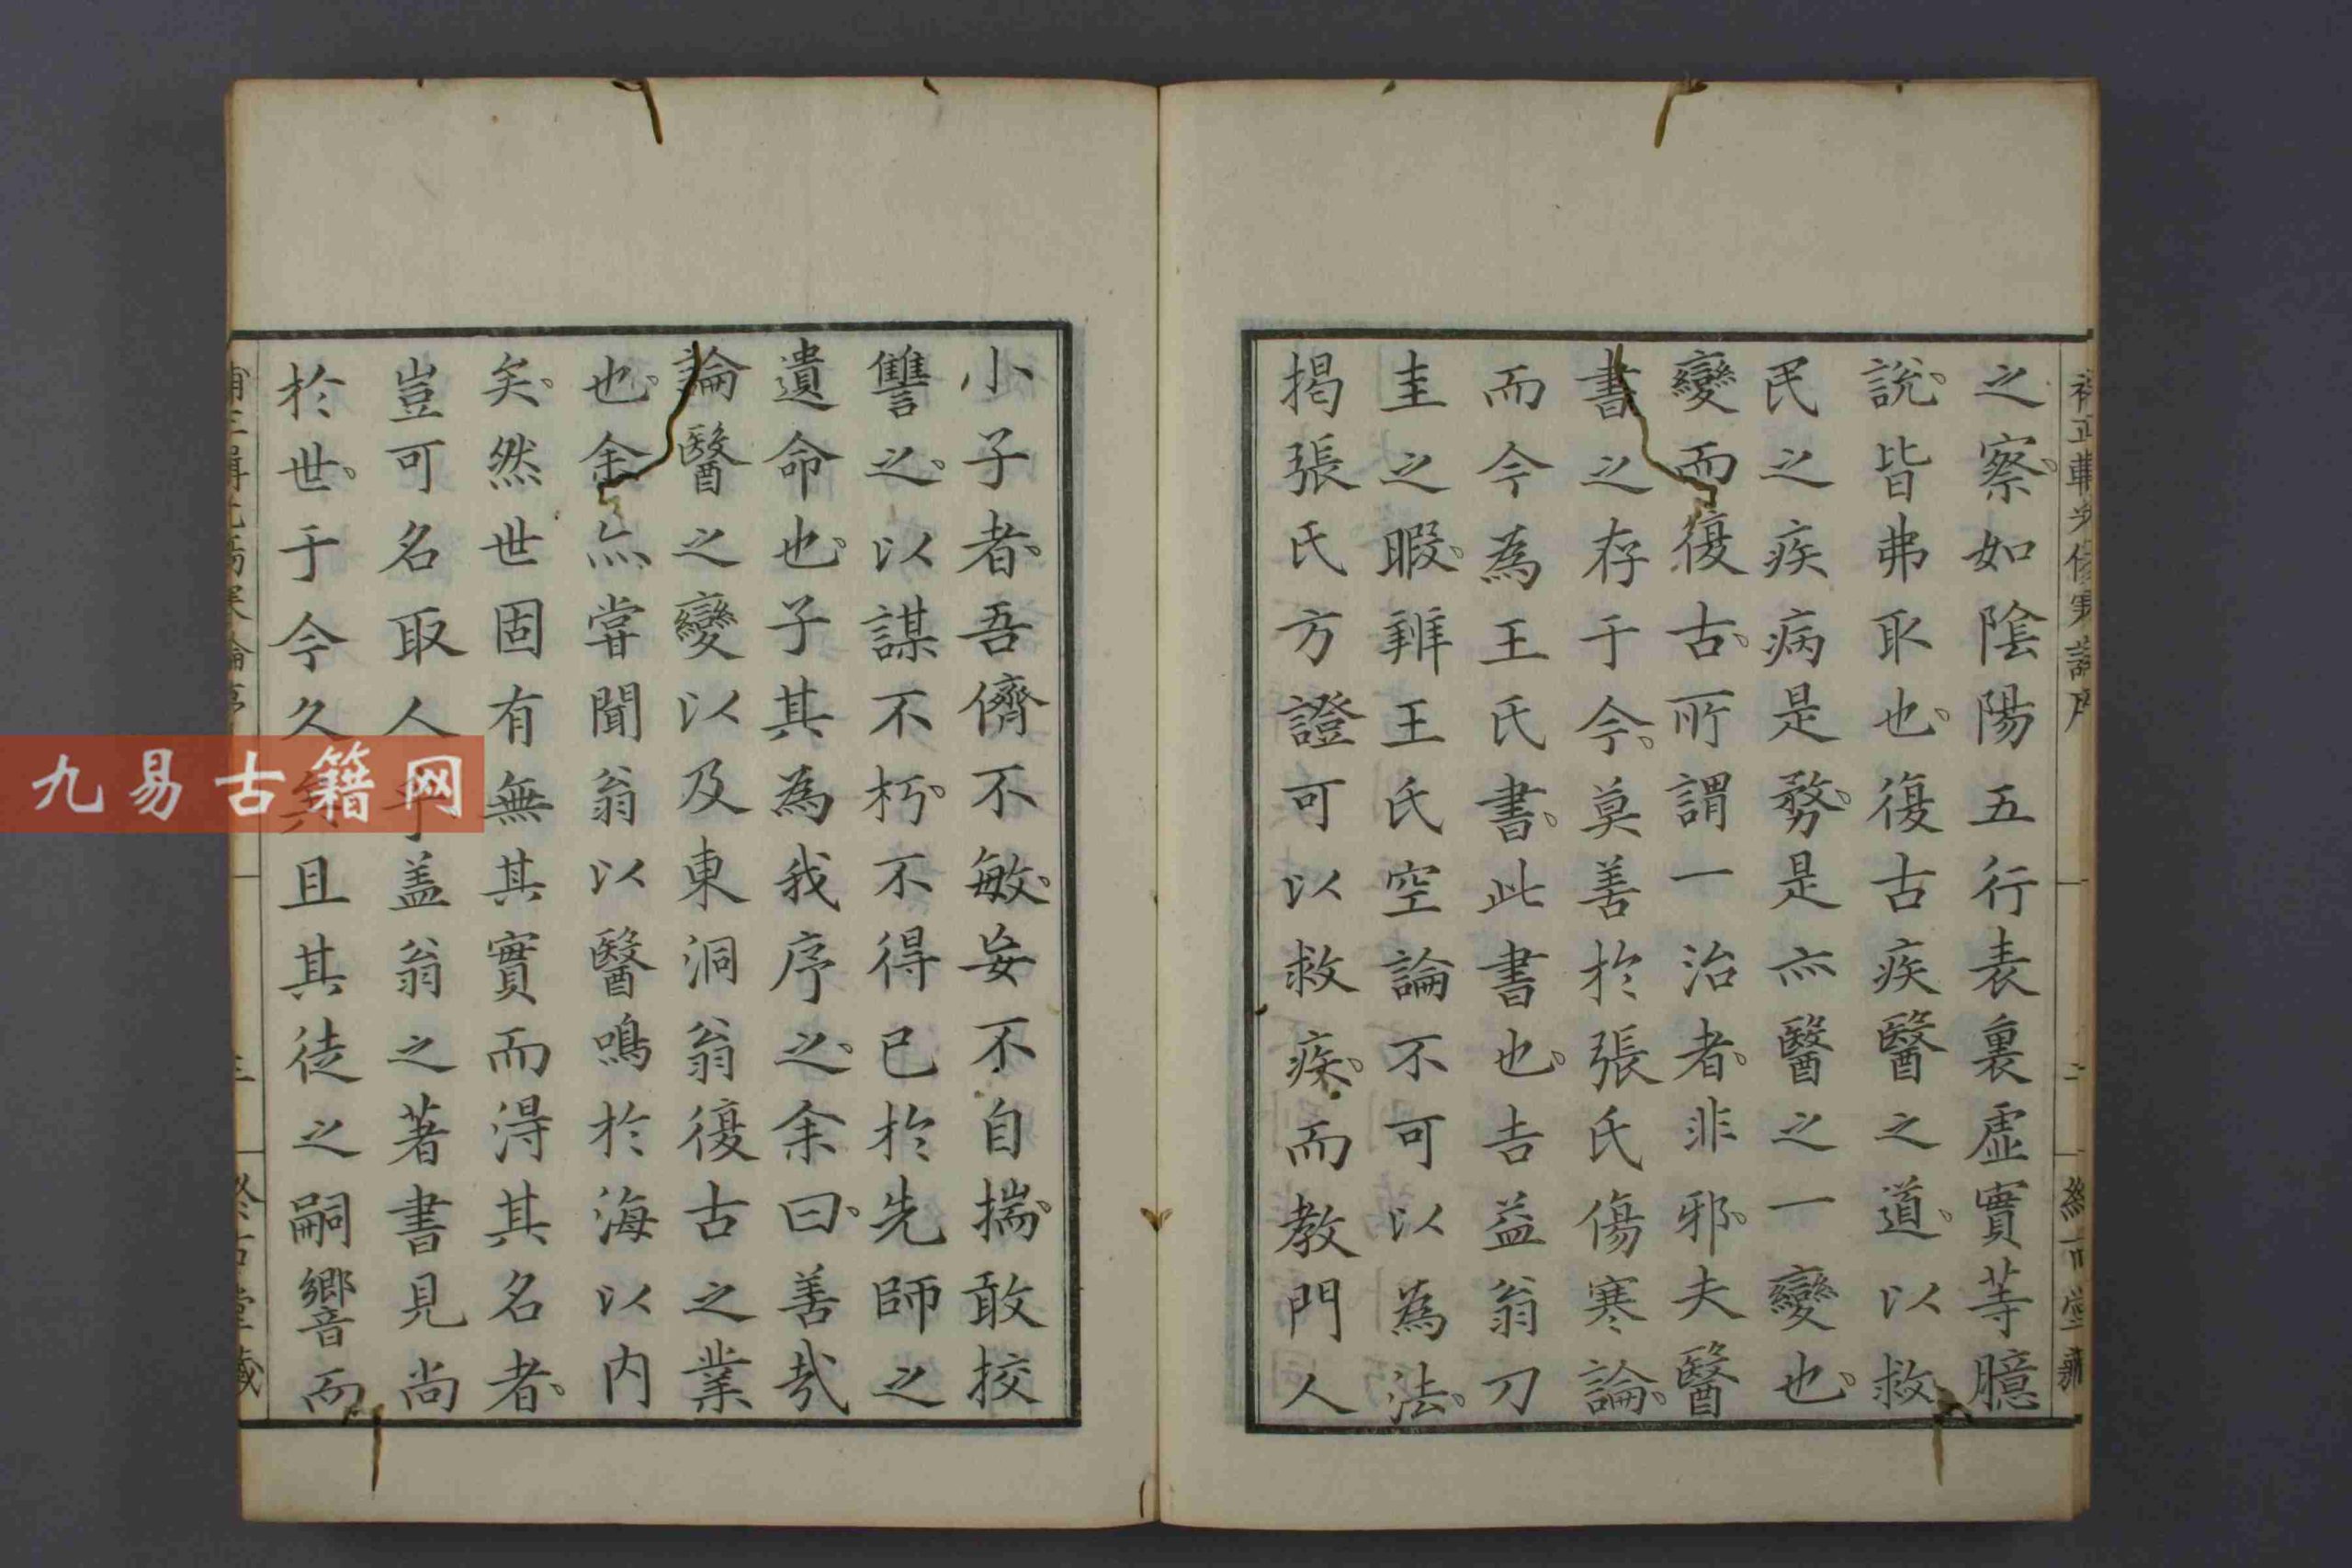 之察如陰陽五行表裏虛實等臆
說皆弗取也復古疾醫之道以救
民之疾病是務是亦醫之一變也
變而復古所謂一治者非邪夫醫
書之存于今莫善於張氏傷寒論
而今為王氏書此書也吉益翁刀
圭之暇辨王氏空論不可以為法
掲張氏方證可以救疾而教門人
小子者吾儕不敏妄不自揣敢挍
讐之以謀不朽不得已於先師之
遺命也子其為我序之余曰善哉
論醫之變以及東洞翁復古之業
也余亦嘗聞翁以醫鳴於海以内
矣然世固有無其實而得其名者
豈可名取人乎盖翁之著書見尚
於世于今久矣且其徒之嗣響而
九易古籍网